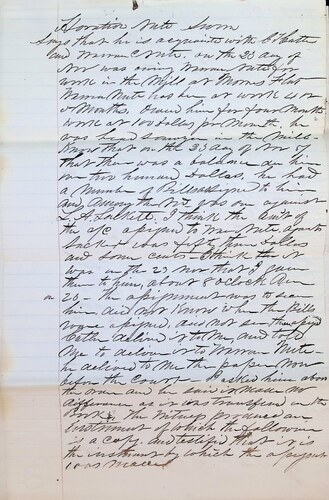 Horation Nute Sworn
Says that he is acquainted with C Cutter
and Warren C Nute. on the 23 day of
Nov was owing Warren Nute for
work in the Mills at Mores Flat
Warren Nute has been at work 4 or
5 Months. Owed him for four Months
work at 100 dollars per Month he
was head sawyer in the Mills.
Know that on the 23 day of Nov 
that there was a balance due him
over two hundred Dollars. he had
a number of Bills assigned to him
and, among the No. was one against
L. A. Sackett. I think the amt of
the a/c assigned to Wm Nute against
Sackett was fifty four dollars
and some cents I think that it
was on the 23 Nov that I gave
them to him, about 8 oclock Am
23 - the assignment was to secure
him did not know when the Bills
were assigned, did not see them assigned
Cutter delivered to Me, and told
Me to deliver it to Warren Nute -
he delivered to Me the paper now
before the Court I asked him about
the and he said it made no
difference as it was transferred on the
Book. the Witness produces an
instrument of which the following
is a copy and testified that it is
the instrument by which the assignment
was made